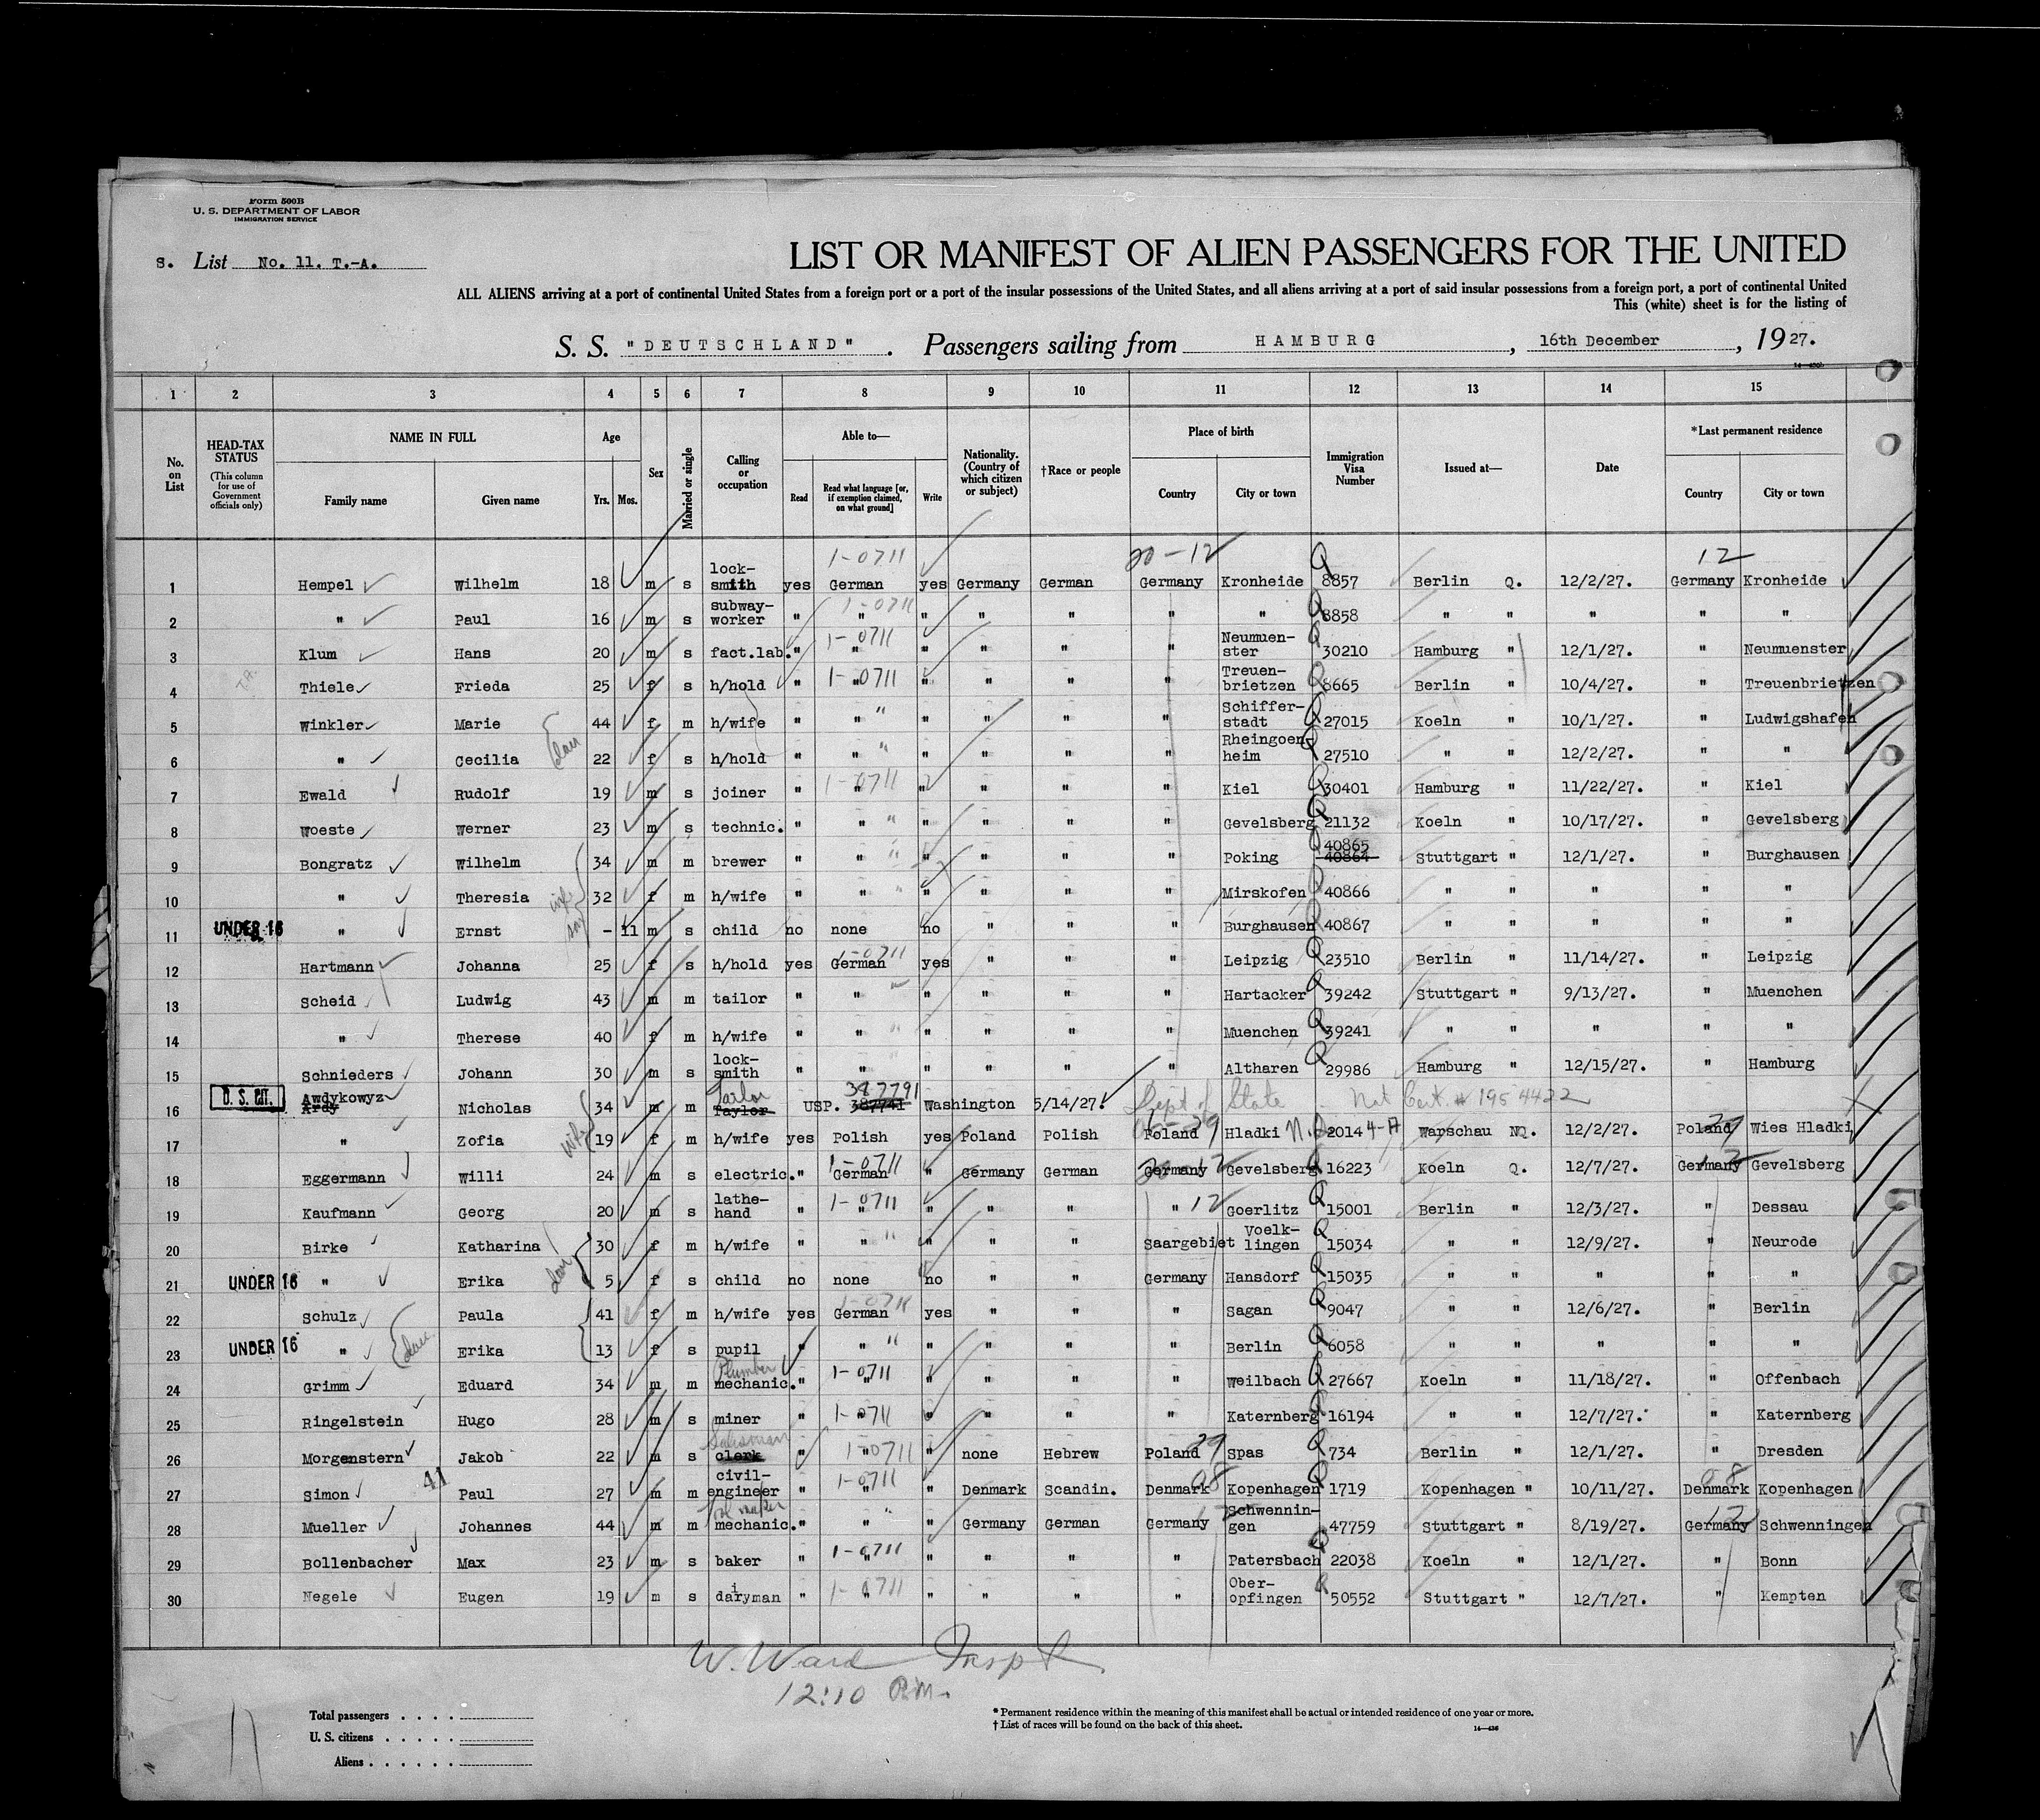 Form 500B
U. S. DEPARTMENT OF LABOR
IMMIGRATION SERVICE
S. List No. 11. T.-A.
LIST OR MANIFEST OF ALIEN PASSENGERS FOR THE UNITED
ALL ALIENS arriving at a port of continental United States from a foreign port or a port of the insular possessions of the United States, and all aliens arriving at a port of said insular possessions from a foreign port, a port of continental United
This (white) sheet is for the listing of
S. S. "DEUTSCHLAND". Passengers sailing from HAMBURG, 16th December, 1927.
14—430b
1 2 3 4 5 6 7 8 9 10 11 12 13 14 15
No. on List
HEAD-TAX STATUS (This column for use of Government officials only)
NAME IN FULL Family name Given name
Age Yrs. Mos.
Sex
Married or single
Calling or occupation
Able to— Read Read what language [or, if exemption claimed, on what ground] Write
Nationality. (Country of which citizen or subject)
†Race or people
Place of birth Country City or town
Immigration Visa Number
Issued at—
Date
*Last permanent residence Country City or town
1-0711 20-12 12
1 Hempel Wilhelm 18 m s lock-smith yes German yes Germany German Germany Kronheide Q 8857 Berlin Q. 12/2/27. Germany Kronheide
2 " Paul 16 m s subway-worker " 1-0711 " " " " " " Q 8858 " " " " "
3 Klum Hans 20 m s fact.lab. " 1-0711 " " " " " Neumuen-ster Q 30210 Hamburg " 12/1/27. " Neumuenster
4 Thiele Frieda 25 f s h/hold " 1-0711 " " " " " Treuen-brietzen Q 8665 Berlin " 10/4/27. " Treuenbrietzen
5 Winkler Marie 44 f m h/wife " " " " " " Schiffer-stadt Q 27015 Koeln " 10/1/27. " Ludwigshafen
6 " Cecilia dau 22 f s h/hold " " " " " " Rheingoen-heim Q 27510 " " 12/2/27. " "
7 Ewald Rudolf 19 m s joiner " 1-0711 " " " " " Kiel Q 30401 Hamburg " 11/22/27. " Kiel
8 Woeste Werner 23 m s technic. " " " " " " Gevelsberg Q 21132 Koeln " 10/17/27. " Gevelsberg
9 Bongratz Wilhelm 34 m m brewer " " " " " " Poking Q 40865 40864 Stuttgart " 12/1/27. " Burghausen
10 " Theresia wife 32 f m h/wife " " " " " " Mirskofen Q 40866 " " " " "
11 UNDER 16 " Ernst son - 11 m s child no none no " " " Burghausen Q 40867 " " " " "
12 Hartmann Johanna 25 f s h/hold yes 1-0711 German yes " " " Leipzig Q 23510 Berlin " 11/14/27. " Leipzig
13 Scheid Ludwig 43 m m tailor " " " " " " Hartacker Q 39242 Stuttgart " 9/13/27. " Muenchen
14 " Therese 40 f m h/wife " " " " " " Muenchen Q 39241 " " " " "
15 Schnieders Johann 30 m s lock-smith " " " " " " Altharen Q 29986 Hamburg " 12/15/27. " Hamburg
16 U. S. CIT. Awdykowyz Ardy Nicholas 34 m m Tailor Taylor USP. 387791 387741 Washington 5/14/27. Dept of State Nat Cert. # 1954422
17 " Zofia wife 19 f m h/wife yes Polish yes Poland Polish Poland 29 Hladki N.Q. 2014 4-A Warschau NQ. 12/2/27. Poland 29 Wies Hladki
18 Eggermann Willi 24 m s electric. " 1-0711 German " Germany German 20-12 Germany Gevelsberg Q 16223 Koeln Q. 12/7/27. Germany 12 Gevelsberg
19 Kaufmann Georg 20 m s lathe-hand " 1-0711 " " " " " 12 Goerlitz Q 15001 Berlin " 12/3/27. " Dessau
20 Birke Katharina 30 f m h/wife " " " " " Saargebiet Voelk-lingen Q 15034 " " 12/9/27. " Neurode
21 UNDER 16 " Erika dau 5 f s child no none no " " Germany Hansdorf Q 15035 " " " " "
22 Schulz Paula 41 f m h/wife yes 1-0711 German yes " " " Sagan Q 9047 " " 12/6/27. " Berlin
23 UNDER 16 " dau Erika 13 f s pupil " " " " " " Berlin Q 6058 " " " " "
24 Grimm Eduard 34 m m Plumber mechanic. " 1-0711 " " " " " Weilbach Q 27667 Koeln " 11/18/27. " Offenbach
25 Ringelstein Hugo 28 m s miner " 1-0711 " " " " " Katernberg Q 16194 " " 12/7/27. " Katernberg
26 Morgenstern Jakob 22 m s Salesman clerk " 1-0711 " " none Hebrew Poland 29 Spas Q 734 Berlin " 12/1/27. " Dresden
27 Simon 41 Paul 27 m m civil-engineer " 1-0711 " " Denmark Scandin. Denmark 08 Kopenhagen Q 1719 Kopenhagen " 10/11/27. Denmark 08 Kopenhagen
28 Mueller Johannes 44 m m tool maker mechanic. " " " Germany German Germany 12 Schwennin-gen Q 47759 Stuttgart " 8/19/27. Germany 12 Schwenningen
29 Bollenbacher Max 23 m s baker " 1-0711 " " " " " Patersbach Q 22038 Koeln " 12/1/27. " Bonn
30 Negele Eugen 19 m s dairyman " 1-0711 " " " " " Ober-opfingen Q 50552 Stuttgart " 12/7/27. " Kempten
W. Ward Inspt
12:10 P.M.
Total passengers . . . .
U. S. citizens . . . . .
Aliens . . . . . .
* Permanent residence within the meaning of this manifest shall be actual or intended residence of one year or more.
† List of races will be found on the back of this sheet.
14—436
11